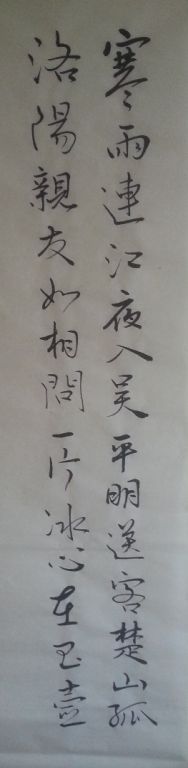 寒雨連江夜入吴平明送客楚山孤
洛陽親友如相問一片冰心在玉壺